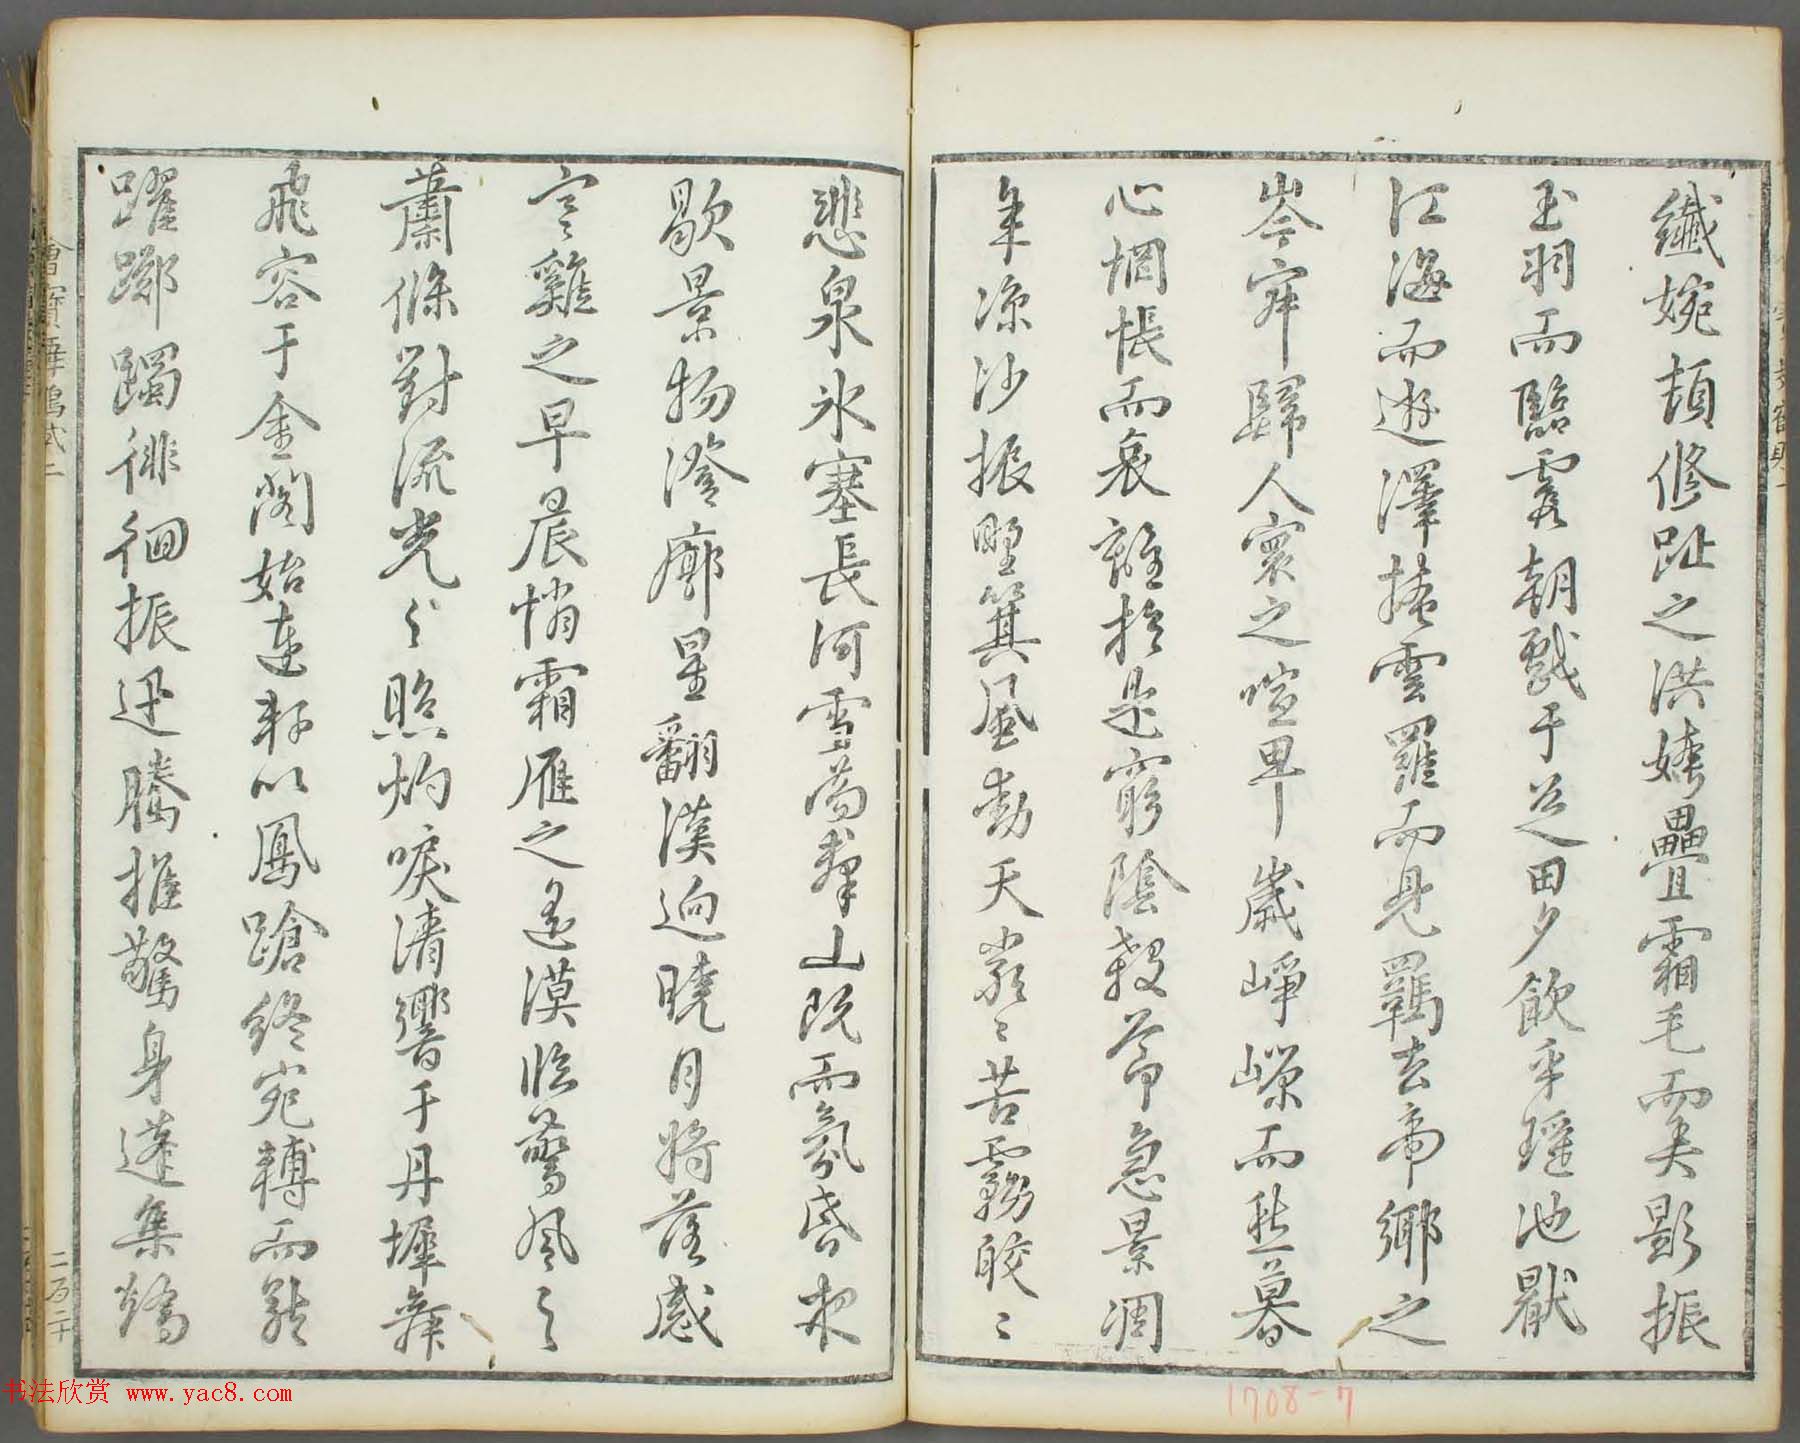 纖婉頓修趾之洪姱疊霜毛而㺯影振
玉羽而臨霞朝戲于芝田夕飲乎瑤池厭
江海而遊澤掩雲羅而見羈去帝鄉之
岑寂歸人寰之喧卑歲崢嶸而愁暮
心惆悵而哀離於是窮陰殺節急景凋
年涼沙振野箕風動天嚴〻苦霧皎〻
悲泉氷塞長河雪滿群山既而氛昏夜
歇景物澄廓星翻漢迴曉月將落感
寒雞之早晨憐霜雁之違漠臨驚風之
蕭條對流光之照灼唳清響于丹墀舞
飛容于金閣始連軒以鳳蹌終宛轉而龍
躍躑躅徘徊振迅騰摧驚身蓬集矯
二百二十
1708-7
书法欣赏 www.yac8.com